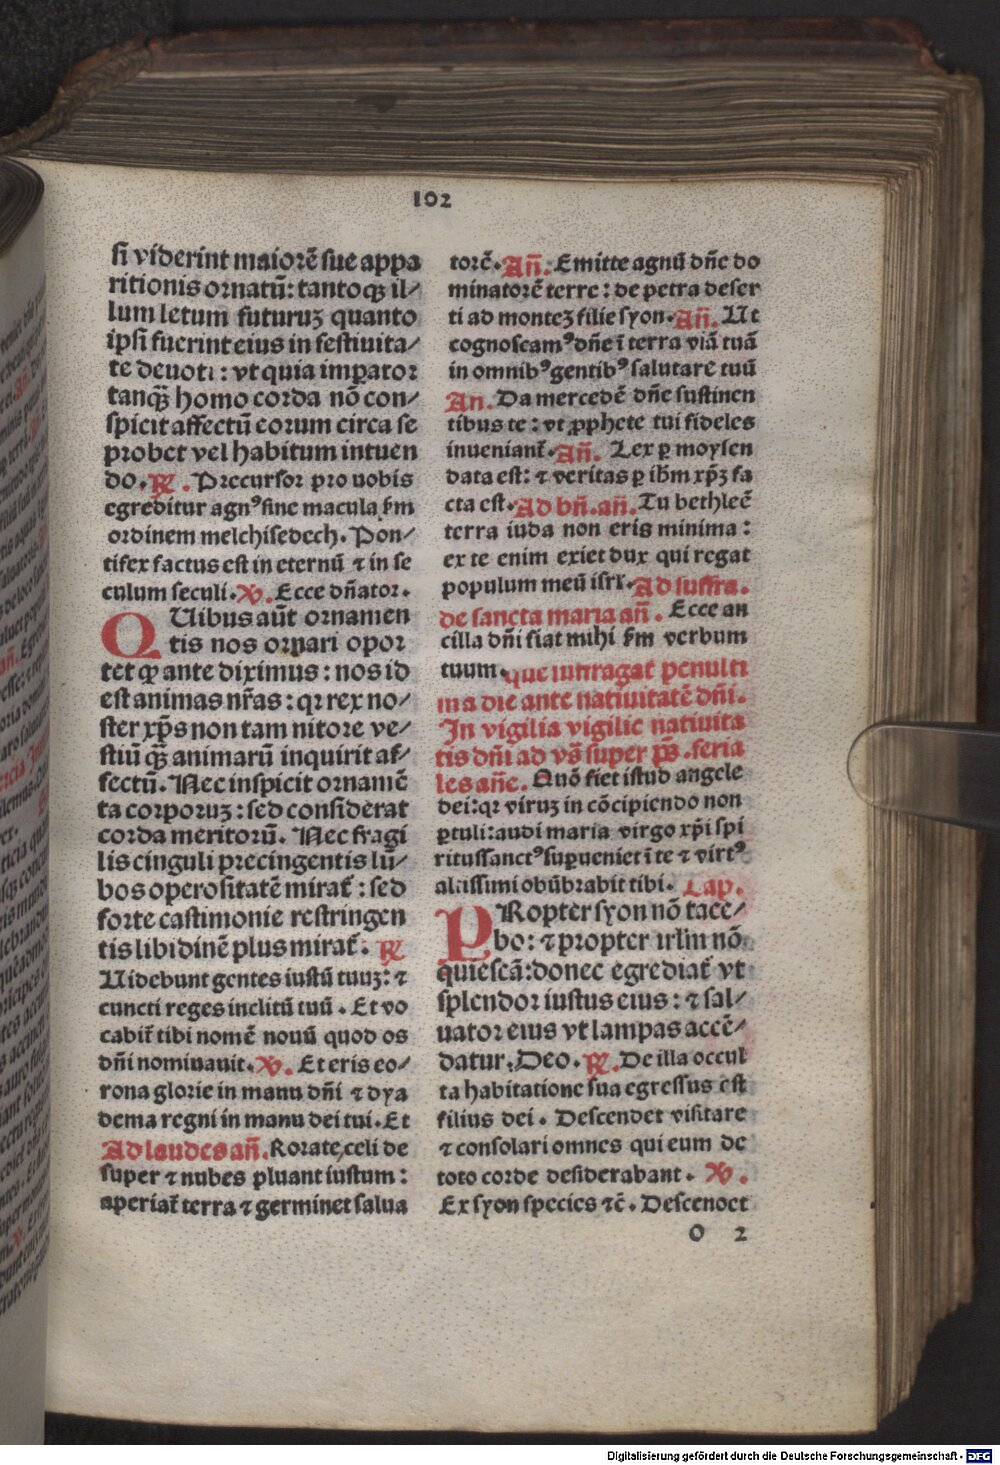 102
si viderint maiorē sue appa
ritionis ornatū: tantoqꝫ il⸗
lum letum futuruꝫ quanto
ipsi fuerint eius in festiuita⸗
te deuoti: vt quia imperator
tanqꝫ homo corda nō con⸗
spicit affectū eorum circa se
probet vel habitum intuen
do. ℟. Precursor pro nobis
egreditur agnꝰ sine macula ẜm
ordinem melchisedech. Pon⸗
tifex factus est in eternū ⁊ in se
culum seculi. ℣. Ecce dn̄ator.
QUibus aūt ornamen
tis nos ornari opor
tet qꝫ ante diximus: nos id
est animas nr̄as: qꝛ rex no⸗
ster xp̄s non tam nitore ve⸗
stiū qꝫ̄ animarū inquirit af⸗
fectū. Nec inspicit ornamē
ta corporuꝫ: sed considerat
corda meritorū. Nec fragi
lis cinguli precingentis lū⸗
bos operositatē mirat᷑: sed
forte castimonie restringen
tis libidinē plus mirat᷑. ℟
Uidebunt gentes iustū tuuꝫ: ⁊
cuncti reges inclitū tuū. Et vo
cabit᷑ tibi nomē nouū quod os
dn̄i nominauit. ℣. Et eris co⸗
rona glorie in manu dn̄i ⁊ dya
dema regni in manu dei tui. Et
Ad laudes an̄. Rorate celi de
super ⁊ nubes pluant iustum:
aperiat᷑ terra ⁊ germinet salua
torē. An̄. Emitte agnū dn̄e do
minatorē terre: de petra deser
ti ad monteꝫ filie syon. An̄. Ut
cognoscamꝰ dn̄e ī terra viā tuā
in omnibꝰ gentibꝰ salutare tuū
An. Da mercedē dn̄e sustinen
tibus te: vt ꝓphete tui fideles
inueniant᷑. An̄. Lex ꝑ moysen
data est: ⁊ veritas ꝑ ihm̄ xp̄ꝫ fa
cta est. Ad bn̄. an̄. Tu bethleē
terra iuda non eris minima:
ex te enim exiet dux qui regat
populum meū isrl̄. Ad suffra.
de sancta maria an̄. Ecce an
cilla dn̄i fiat mihi ẜm verbum
tuum. que iungat᷑ penulti
ma die ante natiuitatē dn̄i.
In vigilia vigilie natiuita
tis dn̄i ad vs̄ super ps̄. feria
les an̄e. Quō fiet istud angele
dei: qꝛ viruꝫ in cōcipiendo non
ꝑtuli: audi maria virgo xp̄i spi
ritussanctꝰ suꝑueniet ī te ⁊ virtꝰ
altissimi obūbrabit tibi. Cap.
PRopter syon nō tace⸗
bo: ⁊ propter irlm̄ nō
quiescā: donec egrediat᷑ vt
splendor iustus eius: ⁊ sal⸗
uator eius vt lampas accē⸗
datur. Deo. ℟. De illa occul
ta habitatione sua egressus est
filius dei. Descendet visitare
⁊ consolari omnes qui eum de
toto corde desiderabant. ℣.
Ex syon species ⁊c̄. Descendet
o 2
Digitalisierung gefördert durch die Deutsche Forschungsgemeinschaft - DFG